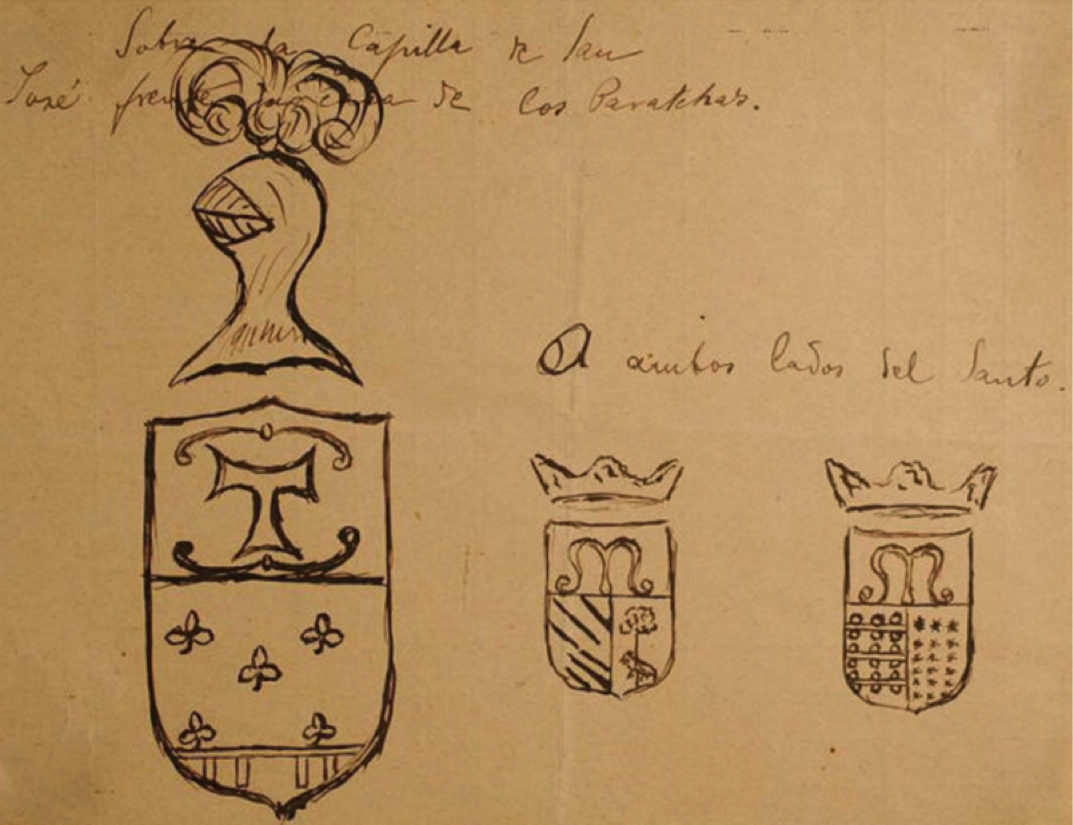 Sobre la Capilla de San
José frente de los Paratchas.
A ambos lados del Santo.